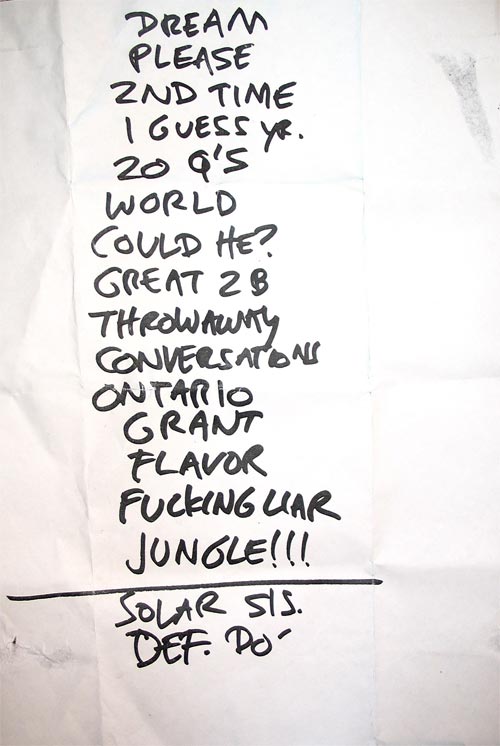 DREAM
PLEASE
2ND TIME
I GUESS YR.
20 Q'S
WORLD
COULD HE?
GREAT 2 B
THROWAWAY
CONVERSATIONS
ONTARIO
GRANT
FLAVOR
FUCKING LIAR
JUNGLE!!!
SOLAR SIS.
DEF. DO